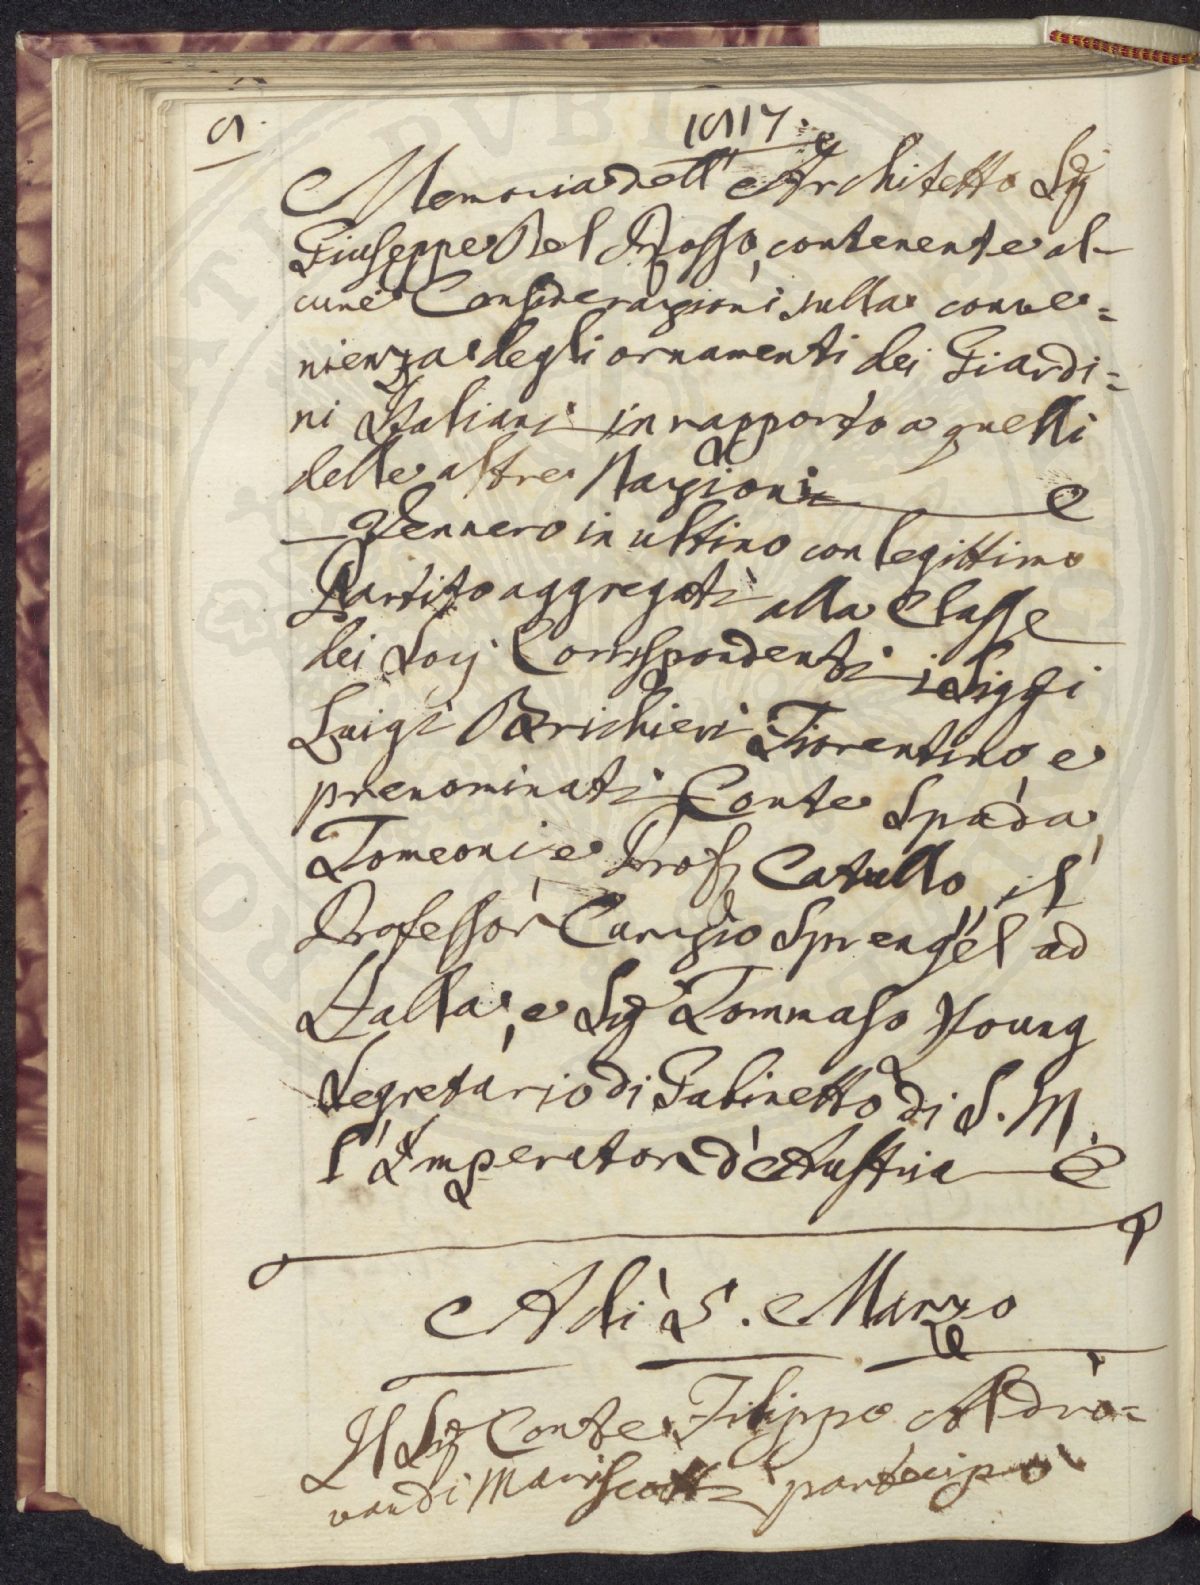 1817.
Memoria dell'Architetto Sig
Giuseppe Del Rosso, contenente al-
cune Considerazioni sulla conve=
nienza degli ornamenti dei Giardi=
ni Italiani in rapporto a quelli
delle altre Nazioni
Vennero in ultimo con legittimo
Partito aggregati alla Classe
dei Socj Corrispondenti i Siggi
Luigi Brichieri Fiorentino e
prenominati Conte Spada,
Tomeoni e Prof Catullo, il
Professor Curzio Sprengel ad
Halla, e Sig Tommaso Young
Segretario di Gabinetto di S. M.
l'Imperator d'Austria
Adì 5. Marzo
Il Sig Conte Filippo Aldro=
vandi Mariscotti partecipò